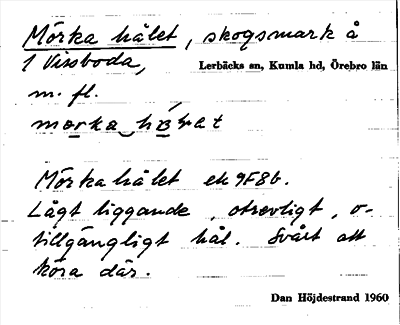 Mörka hålet, skogsmark å
1 Vissboda,
Lerbäcks sn, Kumla hd, Örebro län
m. fl.
Mörka hålet ek 9F8b.
Lågt liggande, otrevligt, o-
tillgängligt hål. Svårt att
köra där.
Dan Höjdestrand 1960